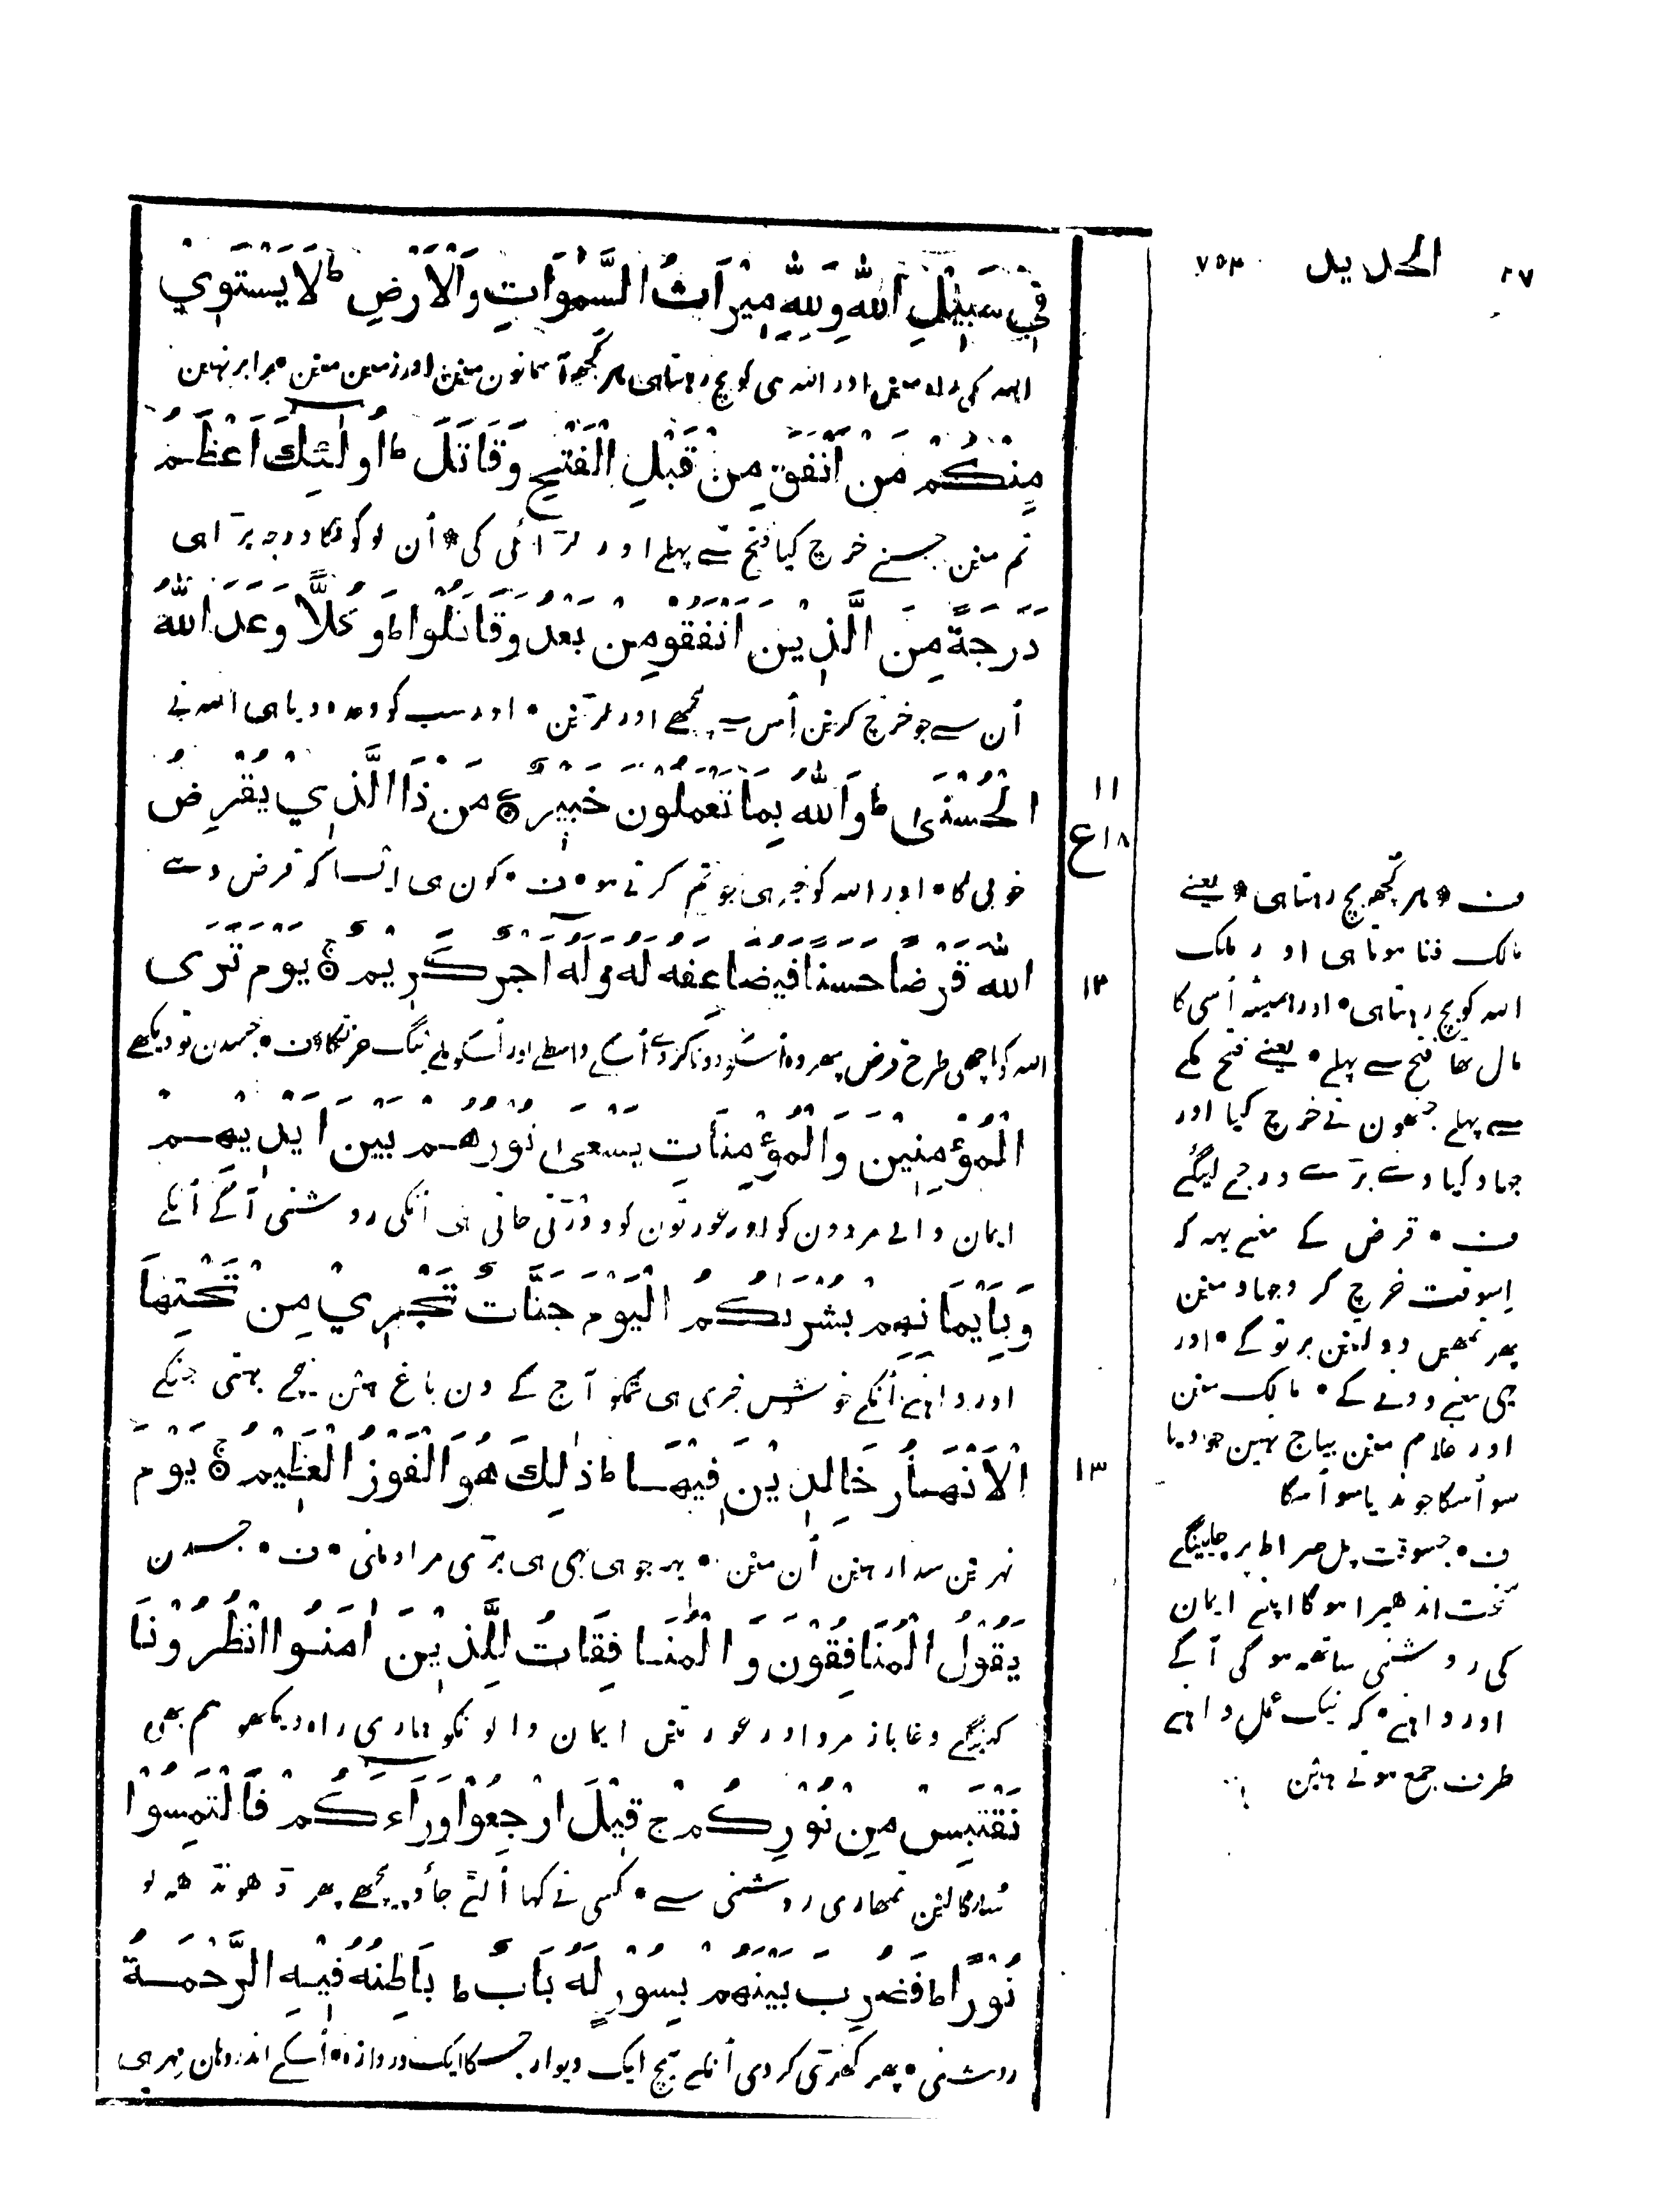 ٢٧ الحديد ٧٥٣
فِيْ سَبِيْلِ اللّٰهِ وَلِلّٰهِ مِيْرَاثُ السَّمٰوَاتِ وَالْاَرْضِ ط لَا يَسْتَوِيْ
الله کی راہ مین اور الله هی کو بچ رہتا هی هر کُچھ آسمانون مین اور زمین مین • برابر نہین
مِنْكُمْ مَنْ اَنْفَقَ مِنْ قَبْلِ الْفَتْحِ وَقَاتَلَ ط اُولٰئِكَ اَعْظَمُ
تم مین جسنے خرچ کیا فتح سے پہلے اور لڑائی کی * اُن لوگونکا درجہ بڑا هی
دَرَجَةً مِنَ الَّذِيْنَ اَنْفَقُو مِنْ بَعْدُ وَقَاتَلُوا ط وَكُلًّا وَعَدَ اللّٰهُ
اُن سے جو خرچ کرین اُس سے پیچھے اور لڑین • اور سب کو وعدہ دیا هی الله نے
١١
الْحُسْنٰى ط وَاللّٰهُ بِمَا تَعْمَلُوْنَ خَبِيْرٌ ۝ مَنْ ذَا الَّذِيْ يُقْرِضُ
١٨ع
خوبی کا • اور الله کو خبر هی جو تم کرتے هو • ف • کون هی ایسا که قرض دے
اللّٰهَ قَرْضًا حَسَنًا فَيُضَاعِفَهُ لَهُ وَلَهُ اَجْرٌ كَرِيْمٌ ۝ يَوْمَ تَرَى
١٢
الله کو اچھی طرح قرض پھر وہ اُسکو دونا کردے اُسکے واسطے اور اُسکو ملے نیگ عزتکا • ف • جسدن تو دیکھے
الْمُؤْمِنِيْنَ وَالْمُؤْمِنَاتِ يَسْعٰى نُوْرُهُمْ بَيْنَ اَيْدِيْهِمْ
ایمان والے مردون کو اور عورتون کو دوڑتی جاتی هی اُنکی روشنی آگے اُنکے
وَبِاَيْمَانِهِمْ بُشْرٰىكُمُ الْيَوْمَ جَنَّاتٌ تَجْرِيْ مِنْ تَحْتِهَا
اور داہنے اُنکے خوشخبری هی تمکو آج کے دن باغ هین نیچے بہتی جنکے
الْاَنْهَارُ خَالِدِيْنَ فِيْهَا ط ذٰلِكَ هُوَ الْفَوْزُ الْعَظِيْمُ ۝ يَوْمَ
١٣
نہرین سدا رهین اُن مین • یہ جو هی یہی هی بڑی مراد ملنی • ف • جسدن
يَقُوْلُ الْمُنَافِقُوْنَ وَالْمُنَافِقَاتُ لِلَّذِيْنَ اٰمَنُوا انْظُرُوْنَا
کہینگے دغاباز مرد اور عورتین ایمان والونکو هماری راہ دیکھو هم بھی
نَقْتَبِسْ مِنْ نُوْرِكُمْ ج قِيْلَ ارْجِعُوْا وَرَاءَكُمْ فَالْتَمِسُوْا
سُلگالین تمھاری روشنی سے • کسی نے کہا اُلٹے جاؤ پیچھے پھر ڈھونڈھ لو
نُوْرًا ط فَضُرِبَ بَيْنَهُمْ بِسُوْرٍ لَهُ بَابٌ ط بَاطِنُهُ فِيْهِ الرَّحْمَةُ
روشنی • پھر کھڑی کردی اُنکے بیچ ایک دیوار جسکا ایک دروازہ • اُسکے اندر وهان مہر هی
ف * هر کُچھ بچ رہتا هی * یعنے
مالک فنا هوتا هی اور ملک
الله کو بچ رہتا هی • اور همیشہ اُسی کا
مال تھا فتح سے پہلے • یعنے فتح مکے
سے پہلے جنھون نے خرچ کیا اور
جهاد کیا وے بڑے درجے لیگئے
ف • قرض کے معنے یہہ که
اِسوقت خرچ کرو جهاد مین
پھر تمھین دولتین برتوگے • اور
یہی معنے دونے کے • مالک مین
اور غلام مین بیاج نہین جو دیا
سو اُسکا جو ندیا سو اُسکا
ف • جسوقت پل صراط پر جاینگے
سخت اندھیرا هوگا اپنے ایمان
کی روشنی ساتھ هوگی آگے
اور داہنے • که نیک عمل داہنے
طرف جمع هوتے هین